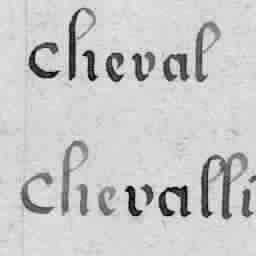 cheval
chevalli